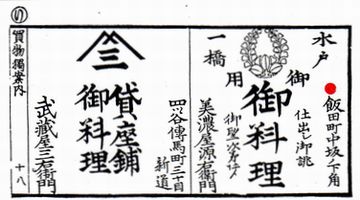 水戸
一橋
御用
飯田町中坂下角
仕出し御誂
御料理
御望次第
美濃屋源右衛門
四ツ谷傳馬町三丁目
新道
三
貸座鋪
御料理
武蔵屋三右衛門
の
買物獨案内
十八